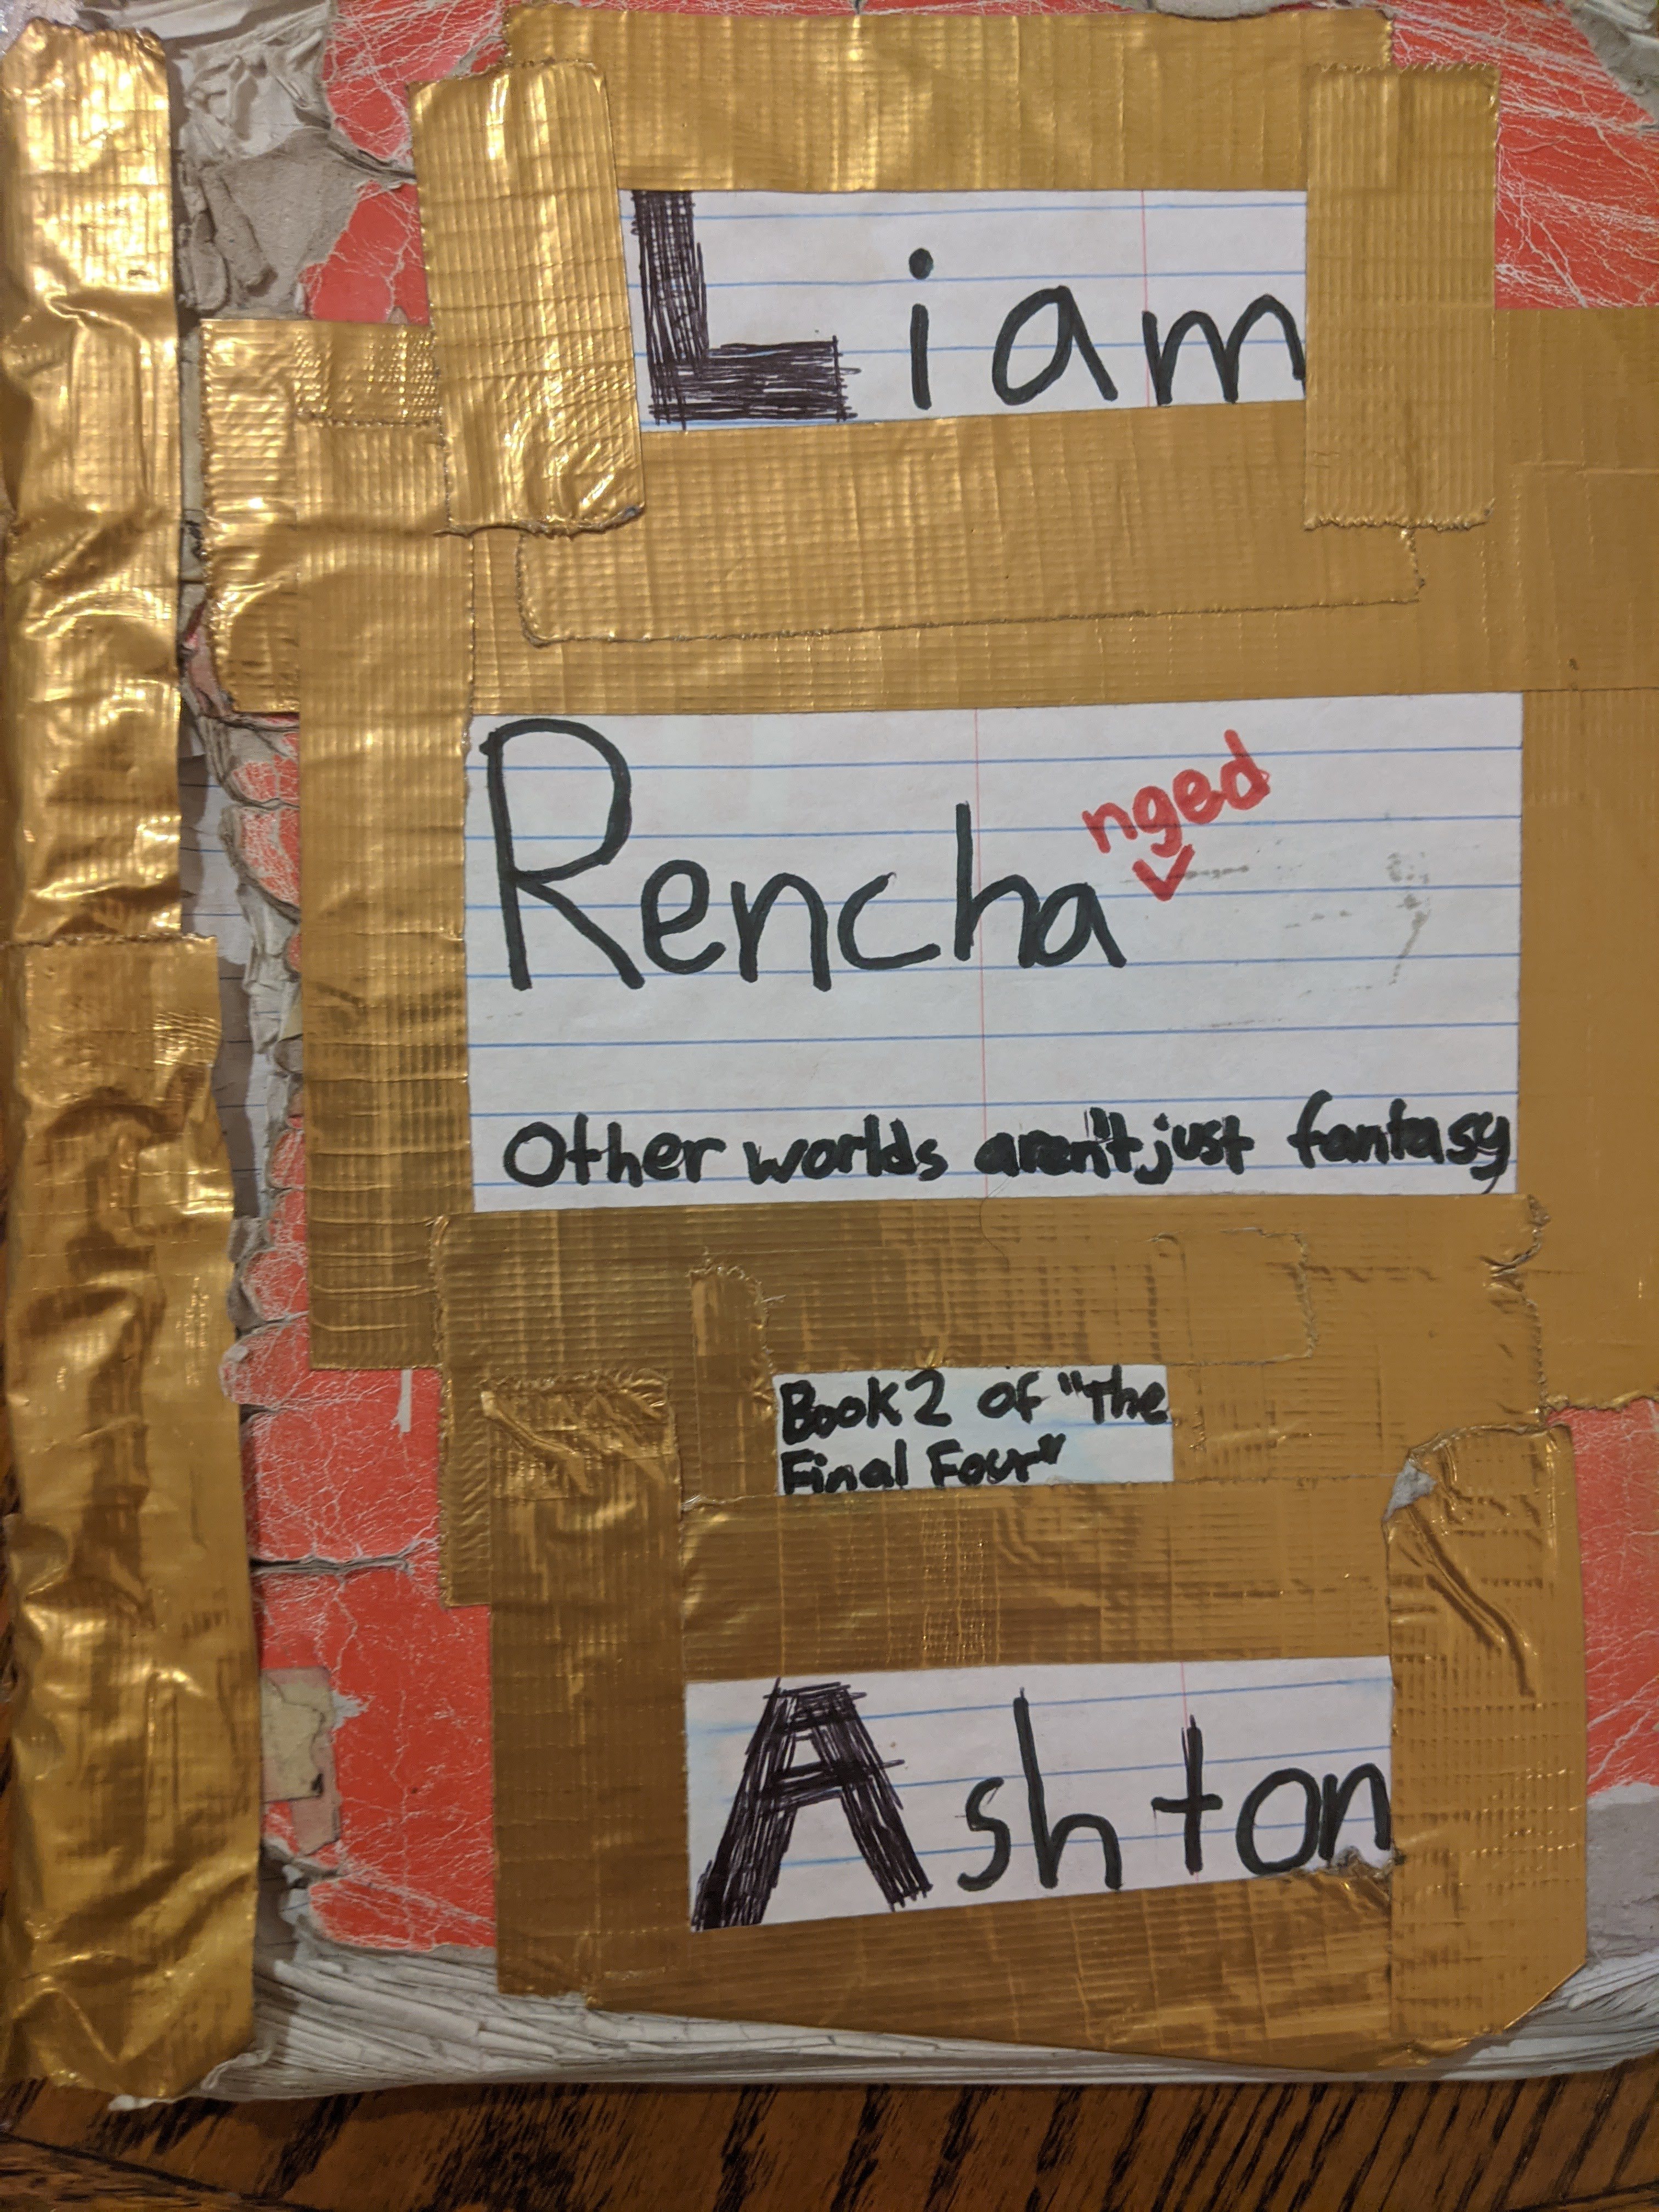 Liam
nged
Rencha
Other worlds aren't just fantasy
Book 2 of "The
Final Four"
Ashton